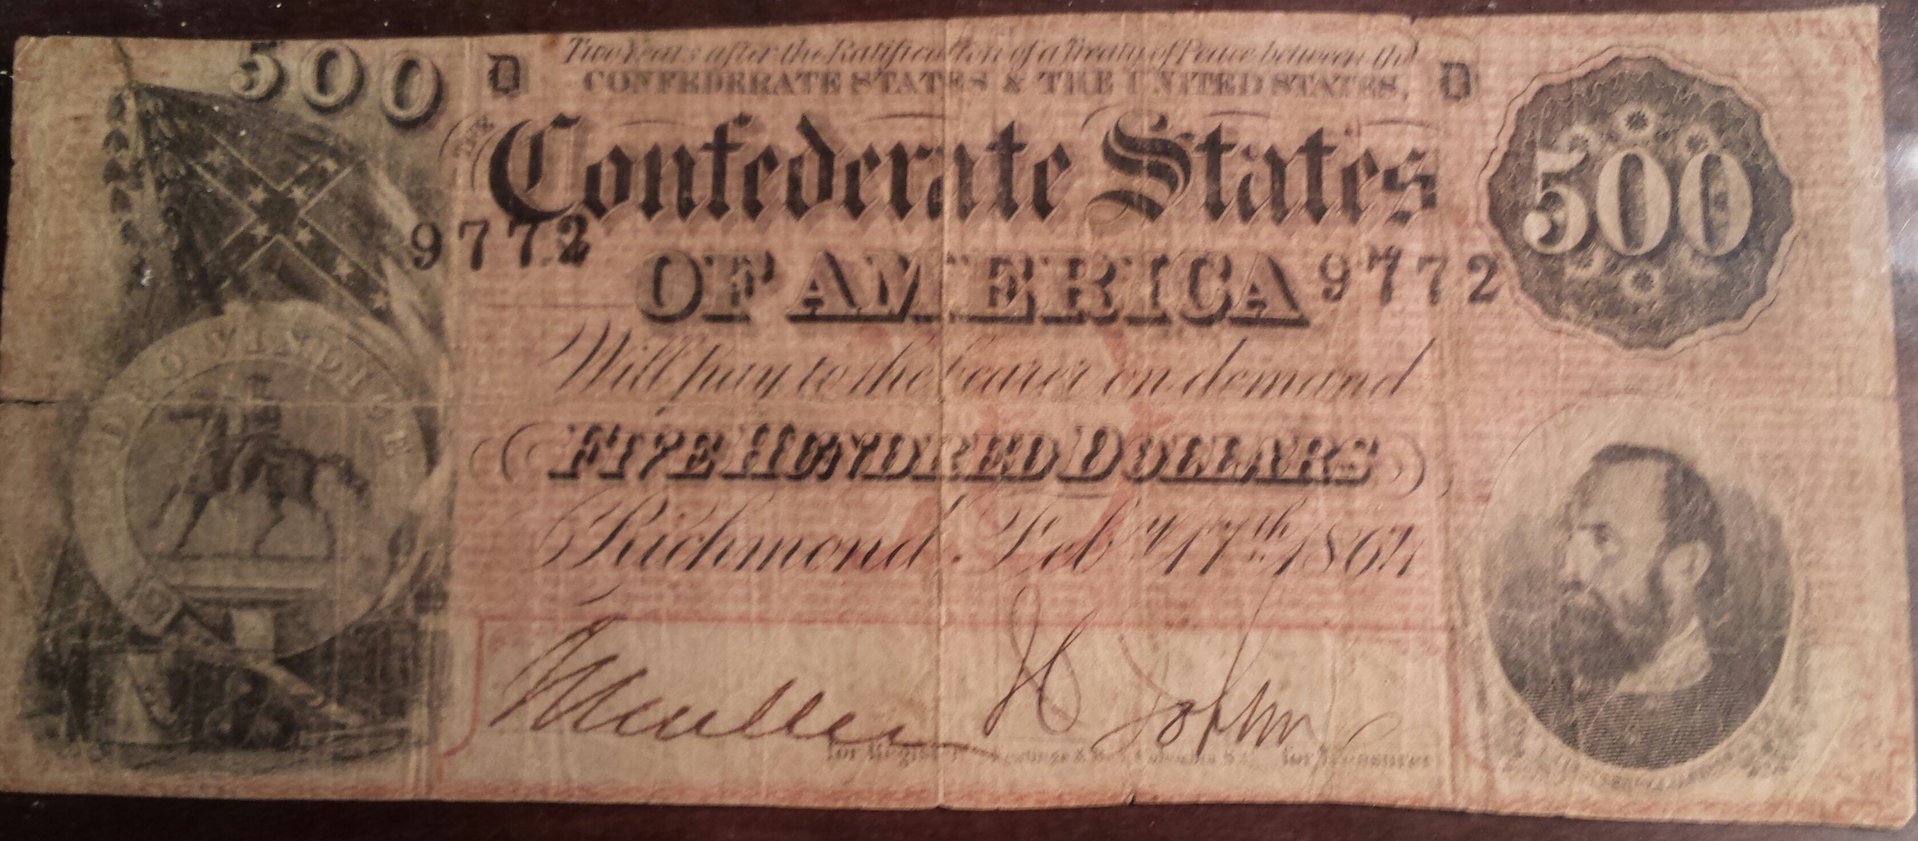 500 D Two Years after the Ratification of a Treaty of Peace between the
CONFEDERATE STATES & THE UNITED STATES, D
THE
Confederate States
500
9772
OF AMERICA 9772
Will pay to the bearer on demand
DEO VINDICE
FIVE HUNDRED DOLLARS
Richmond Feby 17th 1864
for Register
for Treasurer